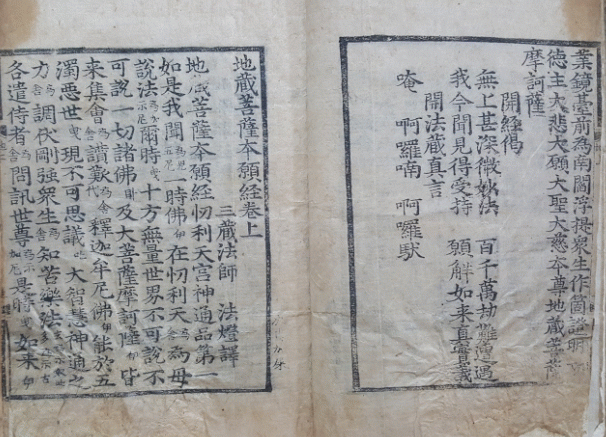 業鏡臺前為南閻浮提衆生作箇證明
德主大悲大願大聖大慈本尊地蔵菩薩
摩訶薩
開經偈
無上甚深微妙法 百千萬劫難遭遇
我今聞見得受持 願解如来真實義
開法蔵真言
唵 啊囉喃 啊囉馱
地蔵菩薩本願經卷上
三蔵法師 法燈譯
地蔵菩薩本願經忉利天宮神通品第一
如是我聞 一時佛 在忉利天 為母
說法 爾時 十方無量世界不可說不
可說一切諸佛 及大菩薩摩訶薩 皆
来集會 讃歎 釋迦牟尼佛 能於五
濁悪世 現不可思議 大智慧神通之
力 調伏剛強衆生 知苦樂法
各遣侍者 問訊世尊 是時 如来